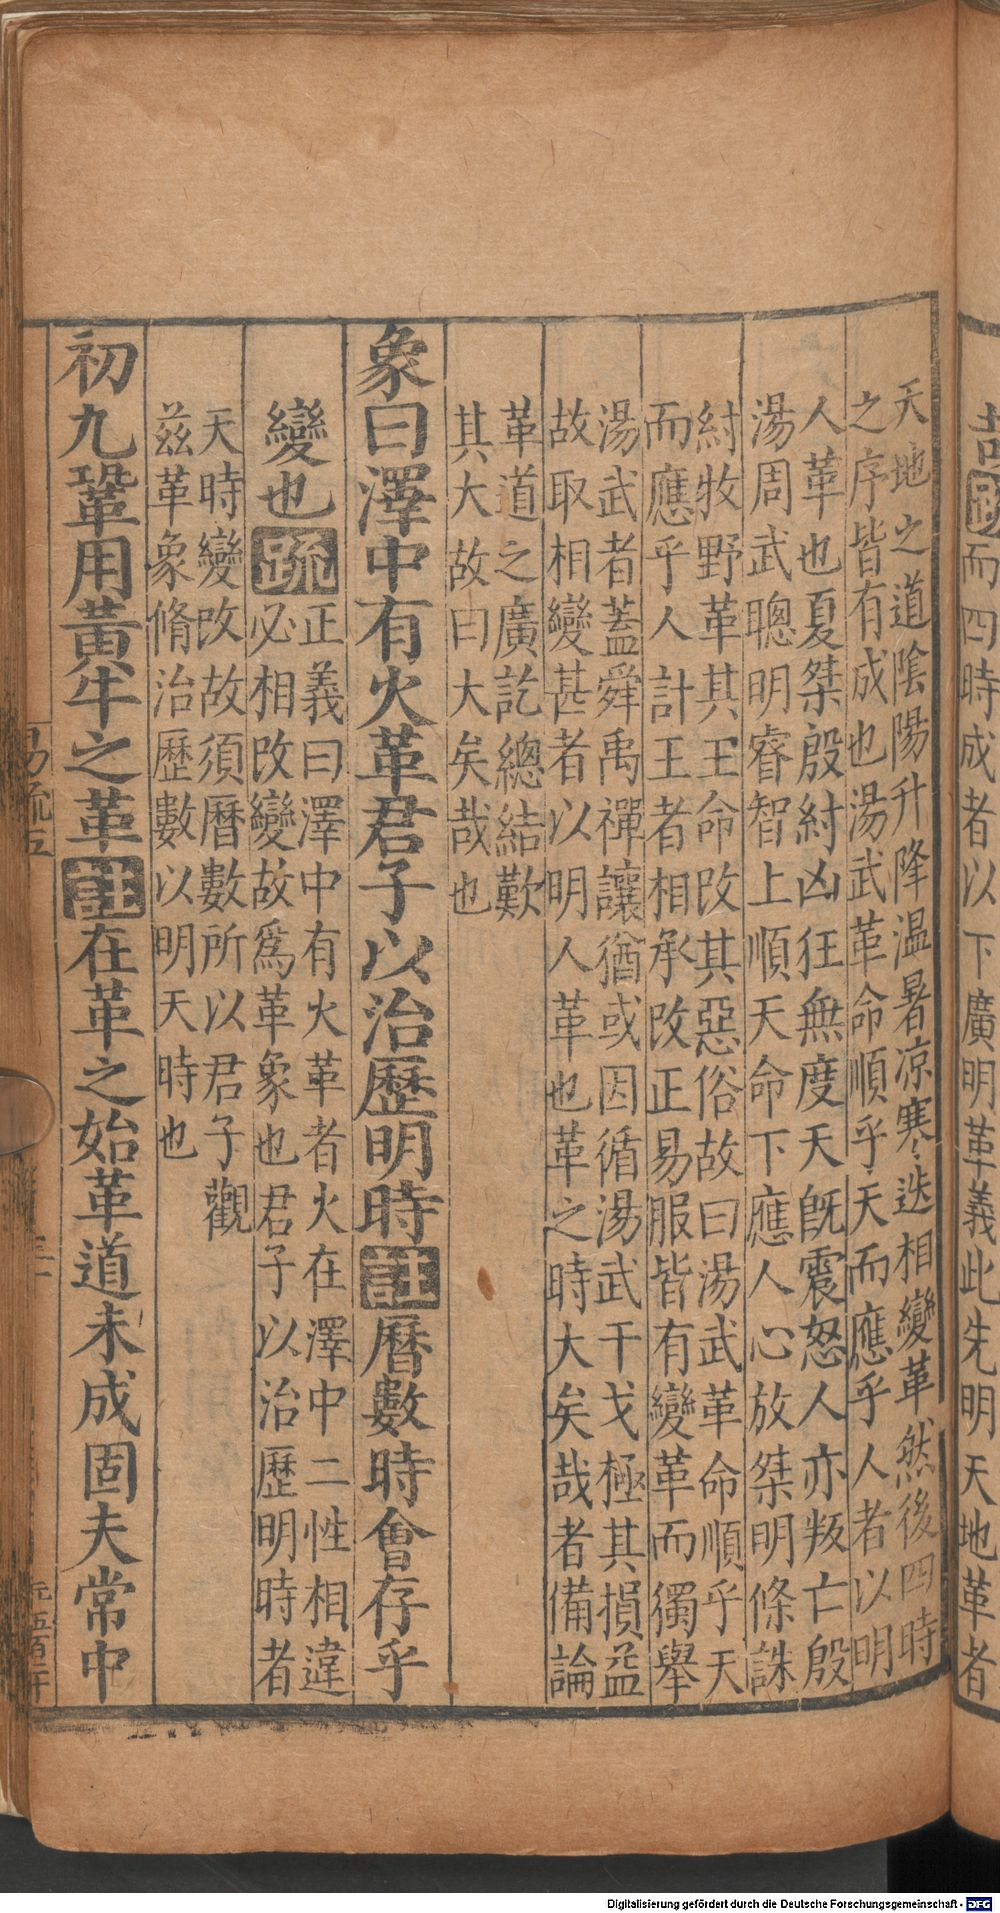 哉疏而四時成者以下廣明革義此先明天地革者
天地之道陰陽升降温暑凉寒迭相變革然後四時
之序皆有成也湯武革命順乎天而應乎人者以明
人革也夏桀殷紂凶狂無度天旣震怒人亦叛亡殷
湯周武聰明睿智上順天命下應人心放桀明條誅
紂牧野革其王命改其惡俗故曰湯武革命順乎天
而應乎人計王者相承改正易服皆有變革而獨舉
湯武者蓋舜禹禪讓猶或因循湯武干戈極其損益
故取相變甚者以明人革也革之時大矣哉者備論
革道之廣訖總結歎
其大故曰大矣哉也
象曰澤中有火革君子以治歷明時註曆數時會存乎
變也疏
正義曰澤中有火革者火在澤中二性相違
必相改變故爲革象也君子以治歷明時者
天時變改故須曆數所以君子觀
茲革象脩治歷數以明天時也
初九鞏用黃牛之革註在革之始革道未成固夫常中
易疏五
元五百二十
Digitalisierung gefördert durch die Deutsche Forschungsgemeinschaft - DFG